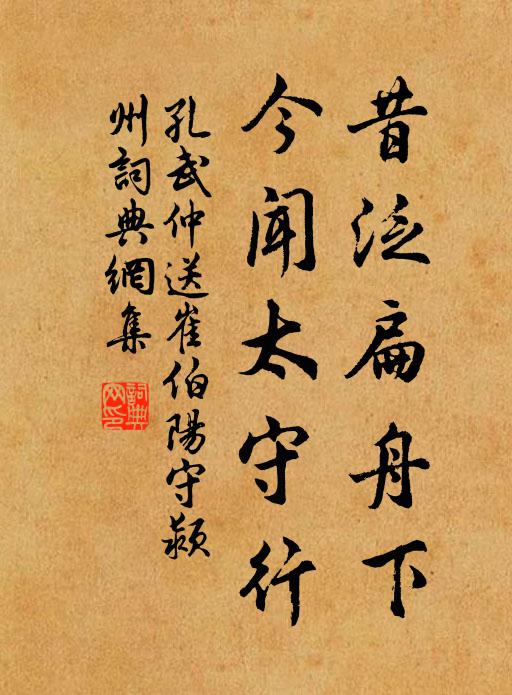 昔泛扁舟下
今闻太守行
孔武仲送崔伯陽守潁
州詞典網集
詞典网印